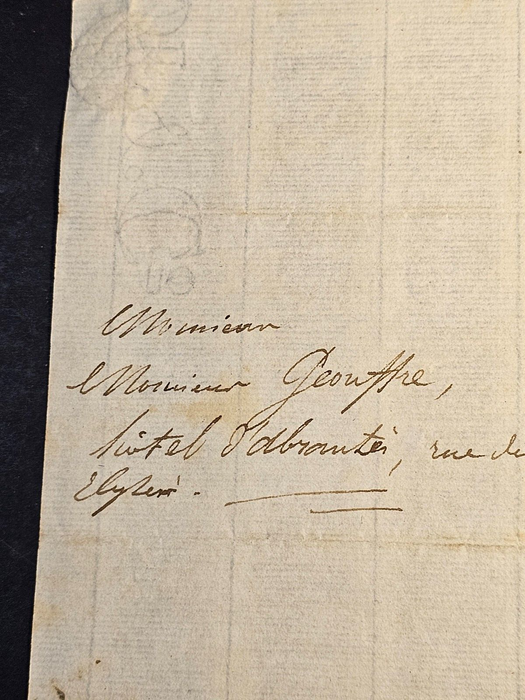 Monsieur
Monsieur Geouffre,
hôtel d'abrantès, rue de
Elysée.